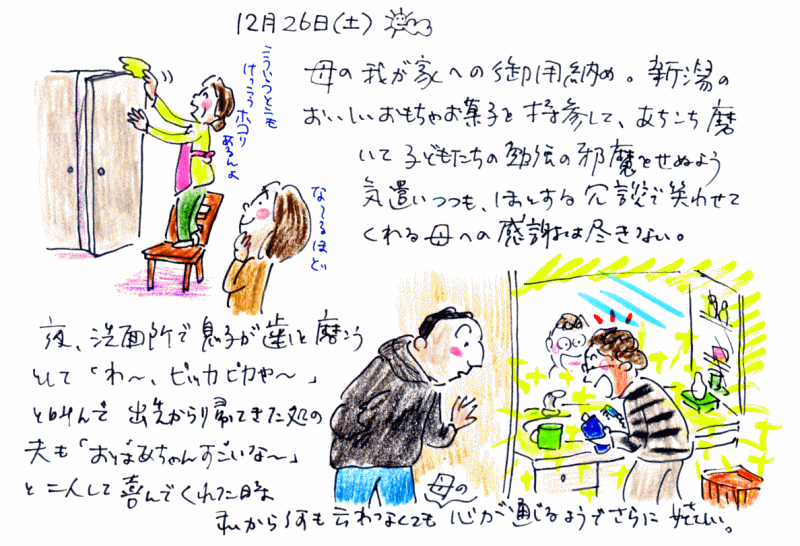 12月26日(土)
こういうところも
けっこうホコリ
あるんよ
な〜るほど
母の我が家への御用納め。新潟の
おいしいおもちやお菓子を持参して、あちこち磨
いて子どもたちの勉強の邪魔をせぬよう
気遣いつつも、ほっとする冗談で笑わせて
くれる母への感謝は尽きない。
夜、洗面所で息子が歯を磨こう
として「わ〜、ピッカピカや〜」
と叫んで出先から帰ってきた処の
夫も「おばあちゃんすごいな〜」
と二人して喜んでくれた時は
母の
私から何も云わなくても心が通じるようでさらに嬉しい。